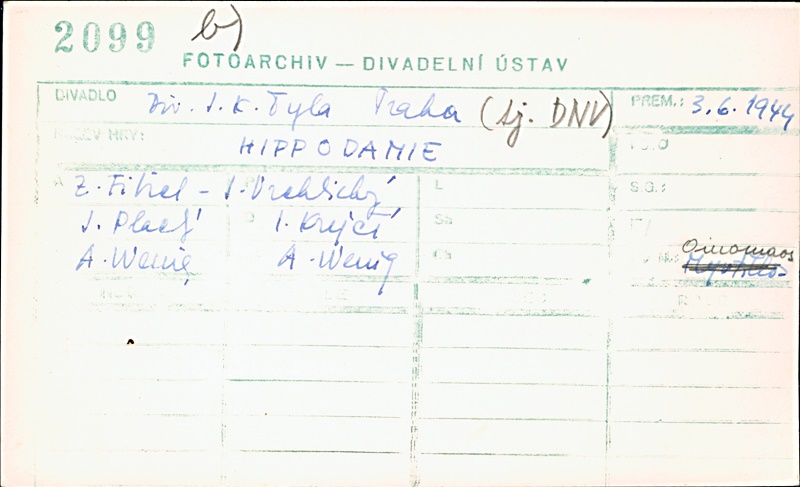 2099 b)
FOTOARCHIV — DIVADELNÍ ÚSTAV
DIVADLO Div. J. K. Tyla Praha (tj. DNV) PREM.: 3.6.1944
NÁZEV HRY: HIPPODAMIE
Z. Fibich - J. Vrchlický L S.G.:
J. Plachý I. Krejčí
A. Wenig A. Wenig Oinomaos